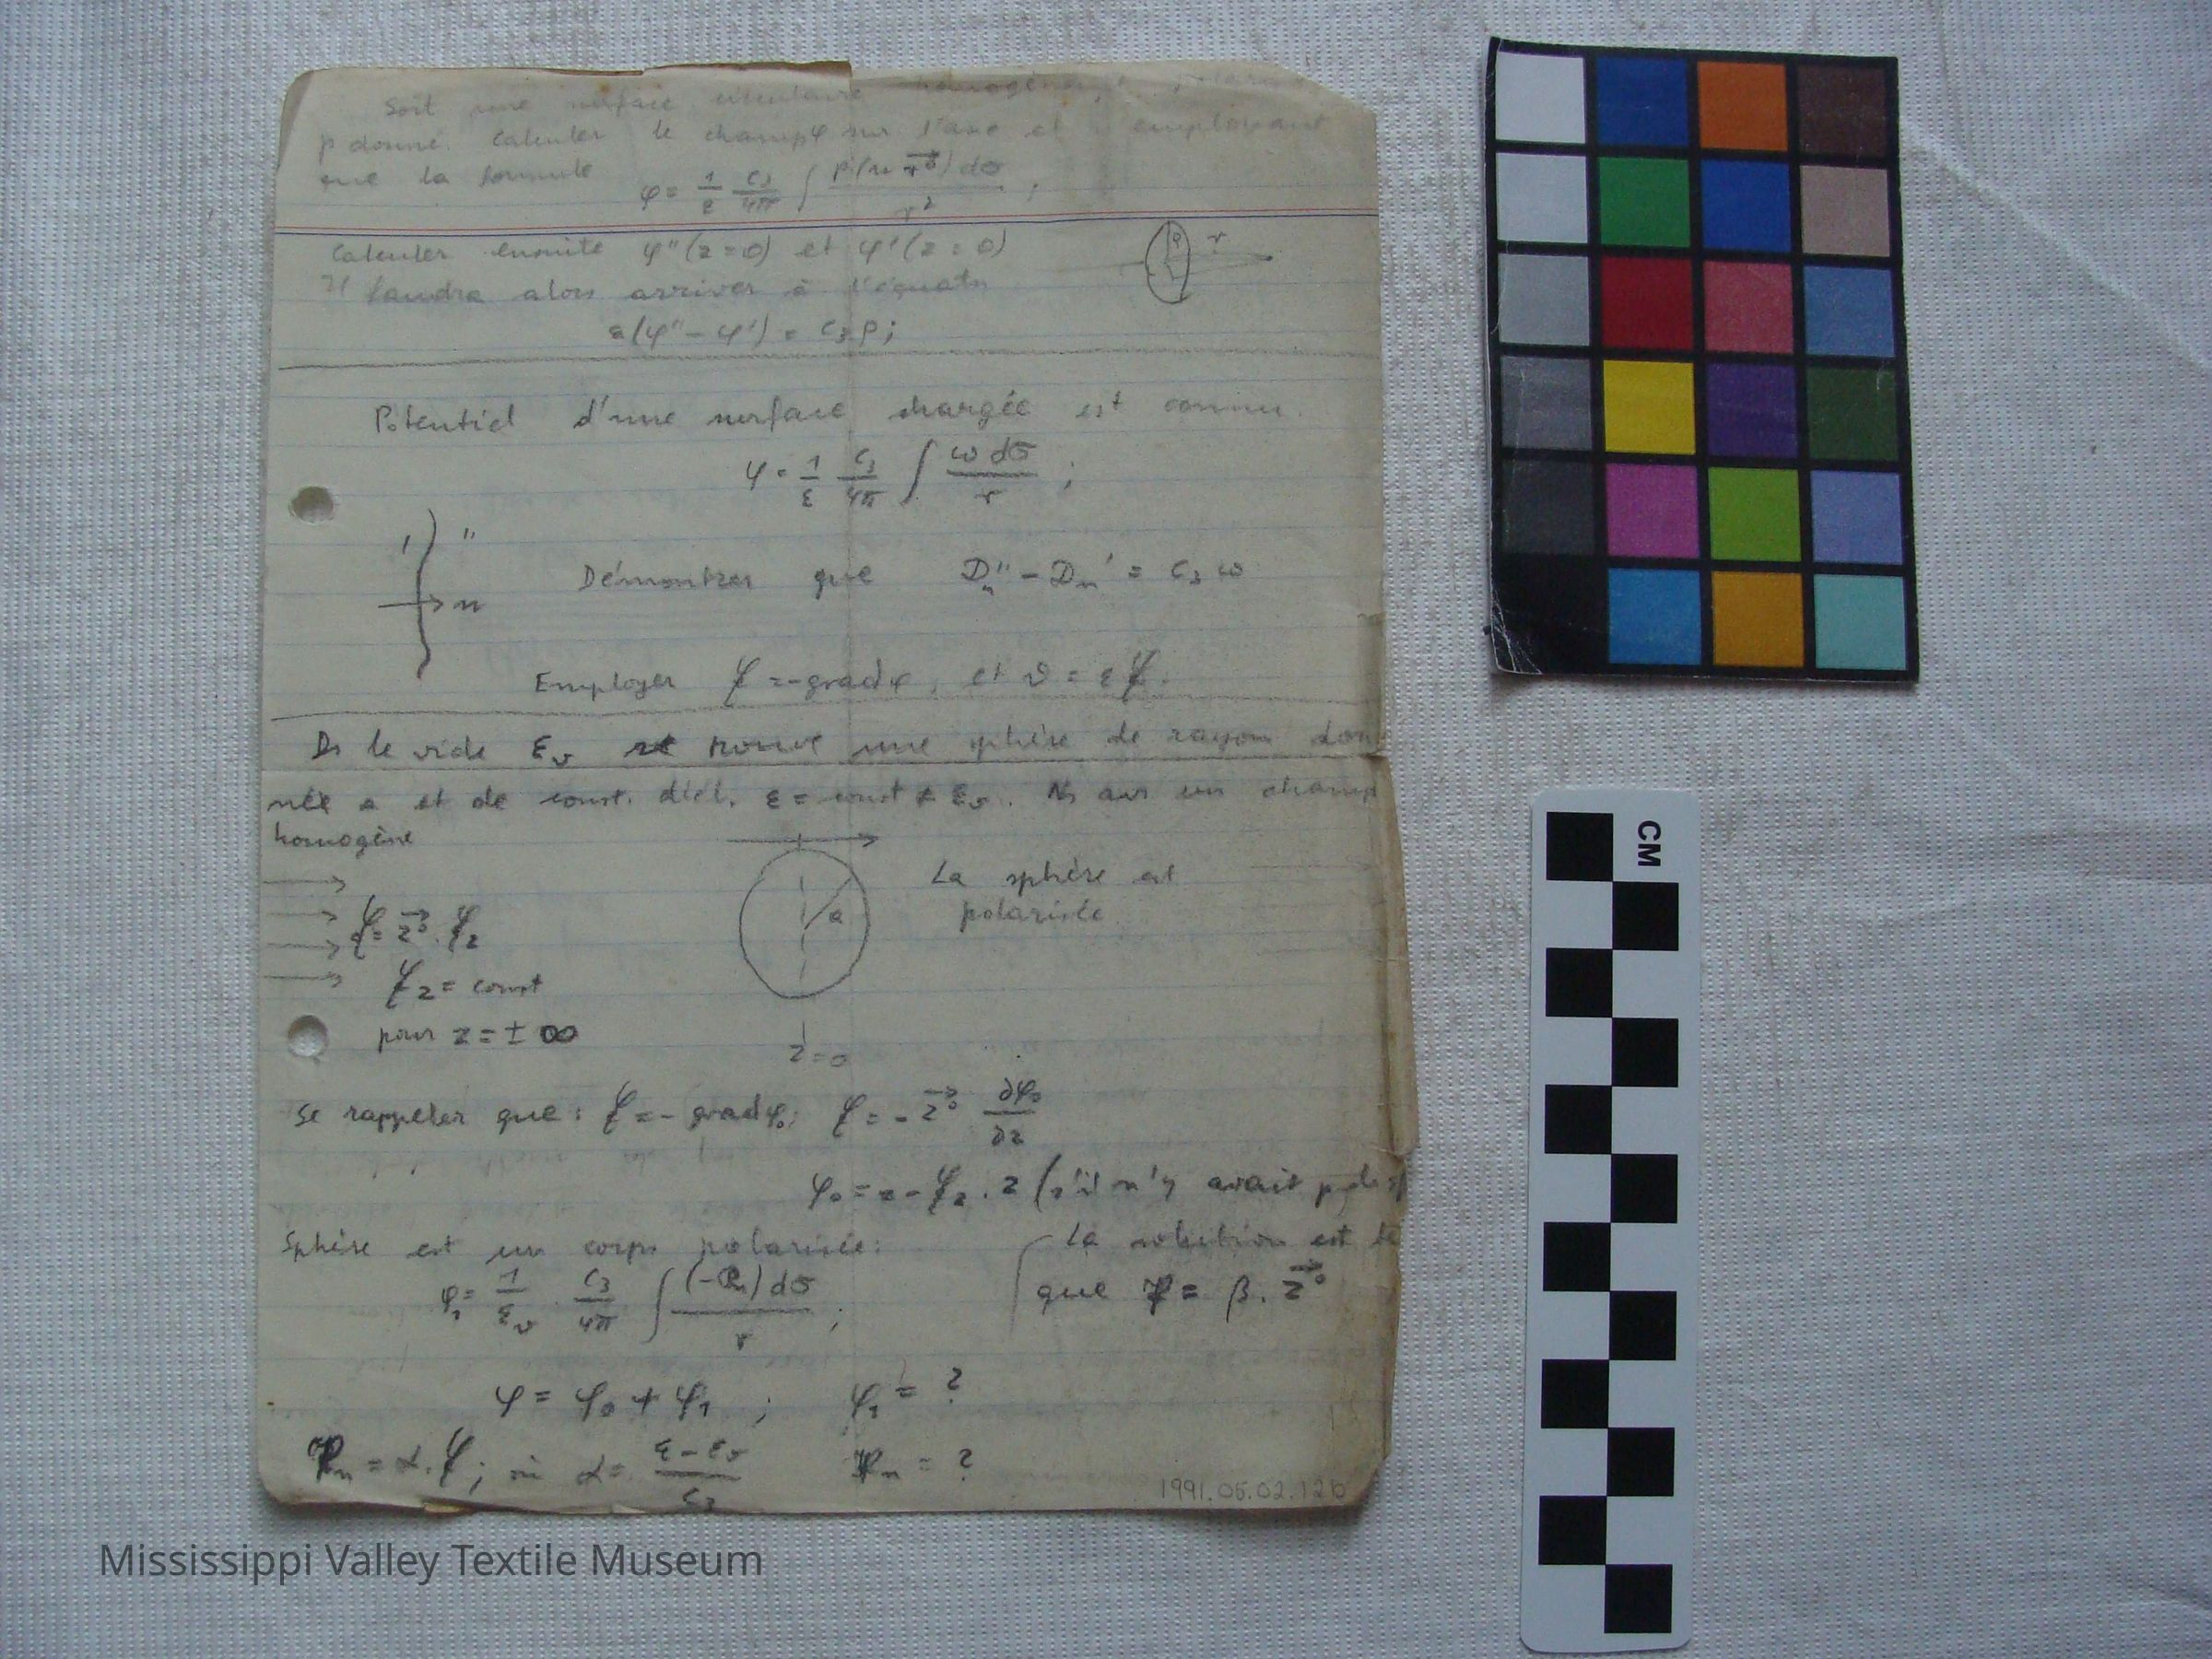 Soit une surface circulaire homogène
p donné. Calculer le champ φ sur l'axe et employant
que la formule φ = 1/ε C₃/4π ∫ p(n r⃗⁰) dσ / r² ;
Calculer ensuite φ''(z=0) et φ'(z=0)
r
Il faudra alors arriver à l'équatn
ε(φ''-φ') = C₃ p;
Potentiel d'une surface chargée est connu.
φ = 1/ε C₃/4π ∫ ω dσ / r ;
' ''
Démontrer que Dₙ'' - Dₙ' = C₃ ω
n
Employer = -grad φ, et = ε
Ds le vide εᵥ se trouve une sphère de rayon don
née a et de const. diél. ε = const ≠ εᵥ. Ns avs un champ
homogène
La sphère est
a
polarisée
= z⃗⁰.
z = const
pour z = ± ∞
z=0
Se rappeler que: = - grad φ₀; = - z⃗⁰ ∂φ₀/∂z
φ₀ = - . z (s'il n'y avait
Sphère est un corps polarisée:
La solution est
φ₁ = 1/εᵥ C₃/4π ∫ (-Pₙ) dσ / r ;
que = β. z⃗⁰
φ = φ₀ + φ₁ ; φ₁ = ?
Pₙ = α. ; où α = ε-εᵥ / C₃ Pₙ = ?
1991.05.02.12b
CM
Mississippi Valley Textile Museum